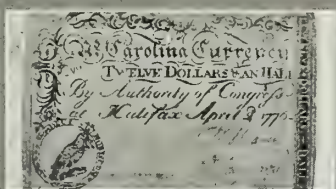 N Carolina Currency
TWELVE DOLLARS & AN HALF
By Authority of Congress
at Halifax April 2 1776